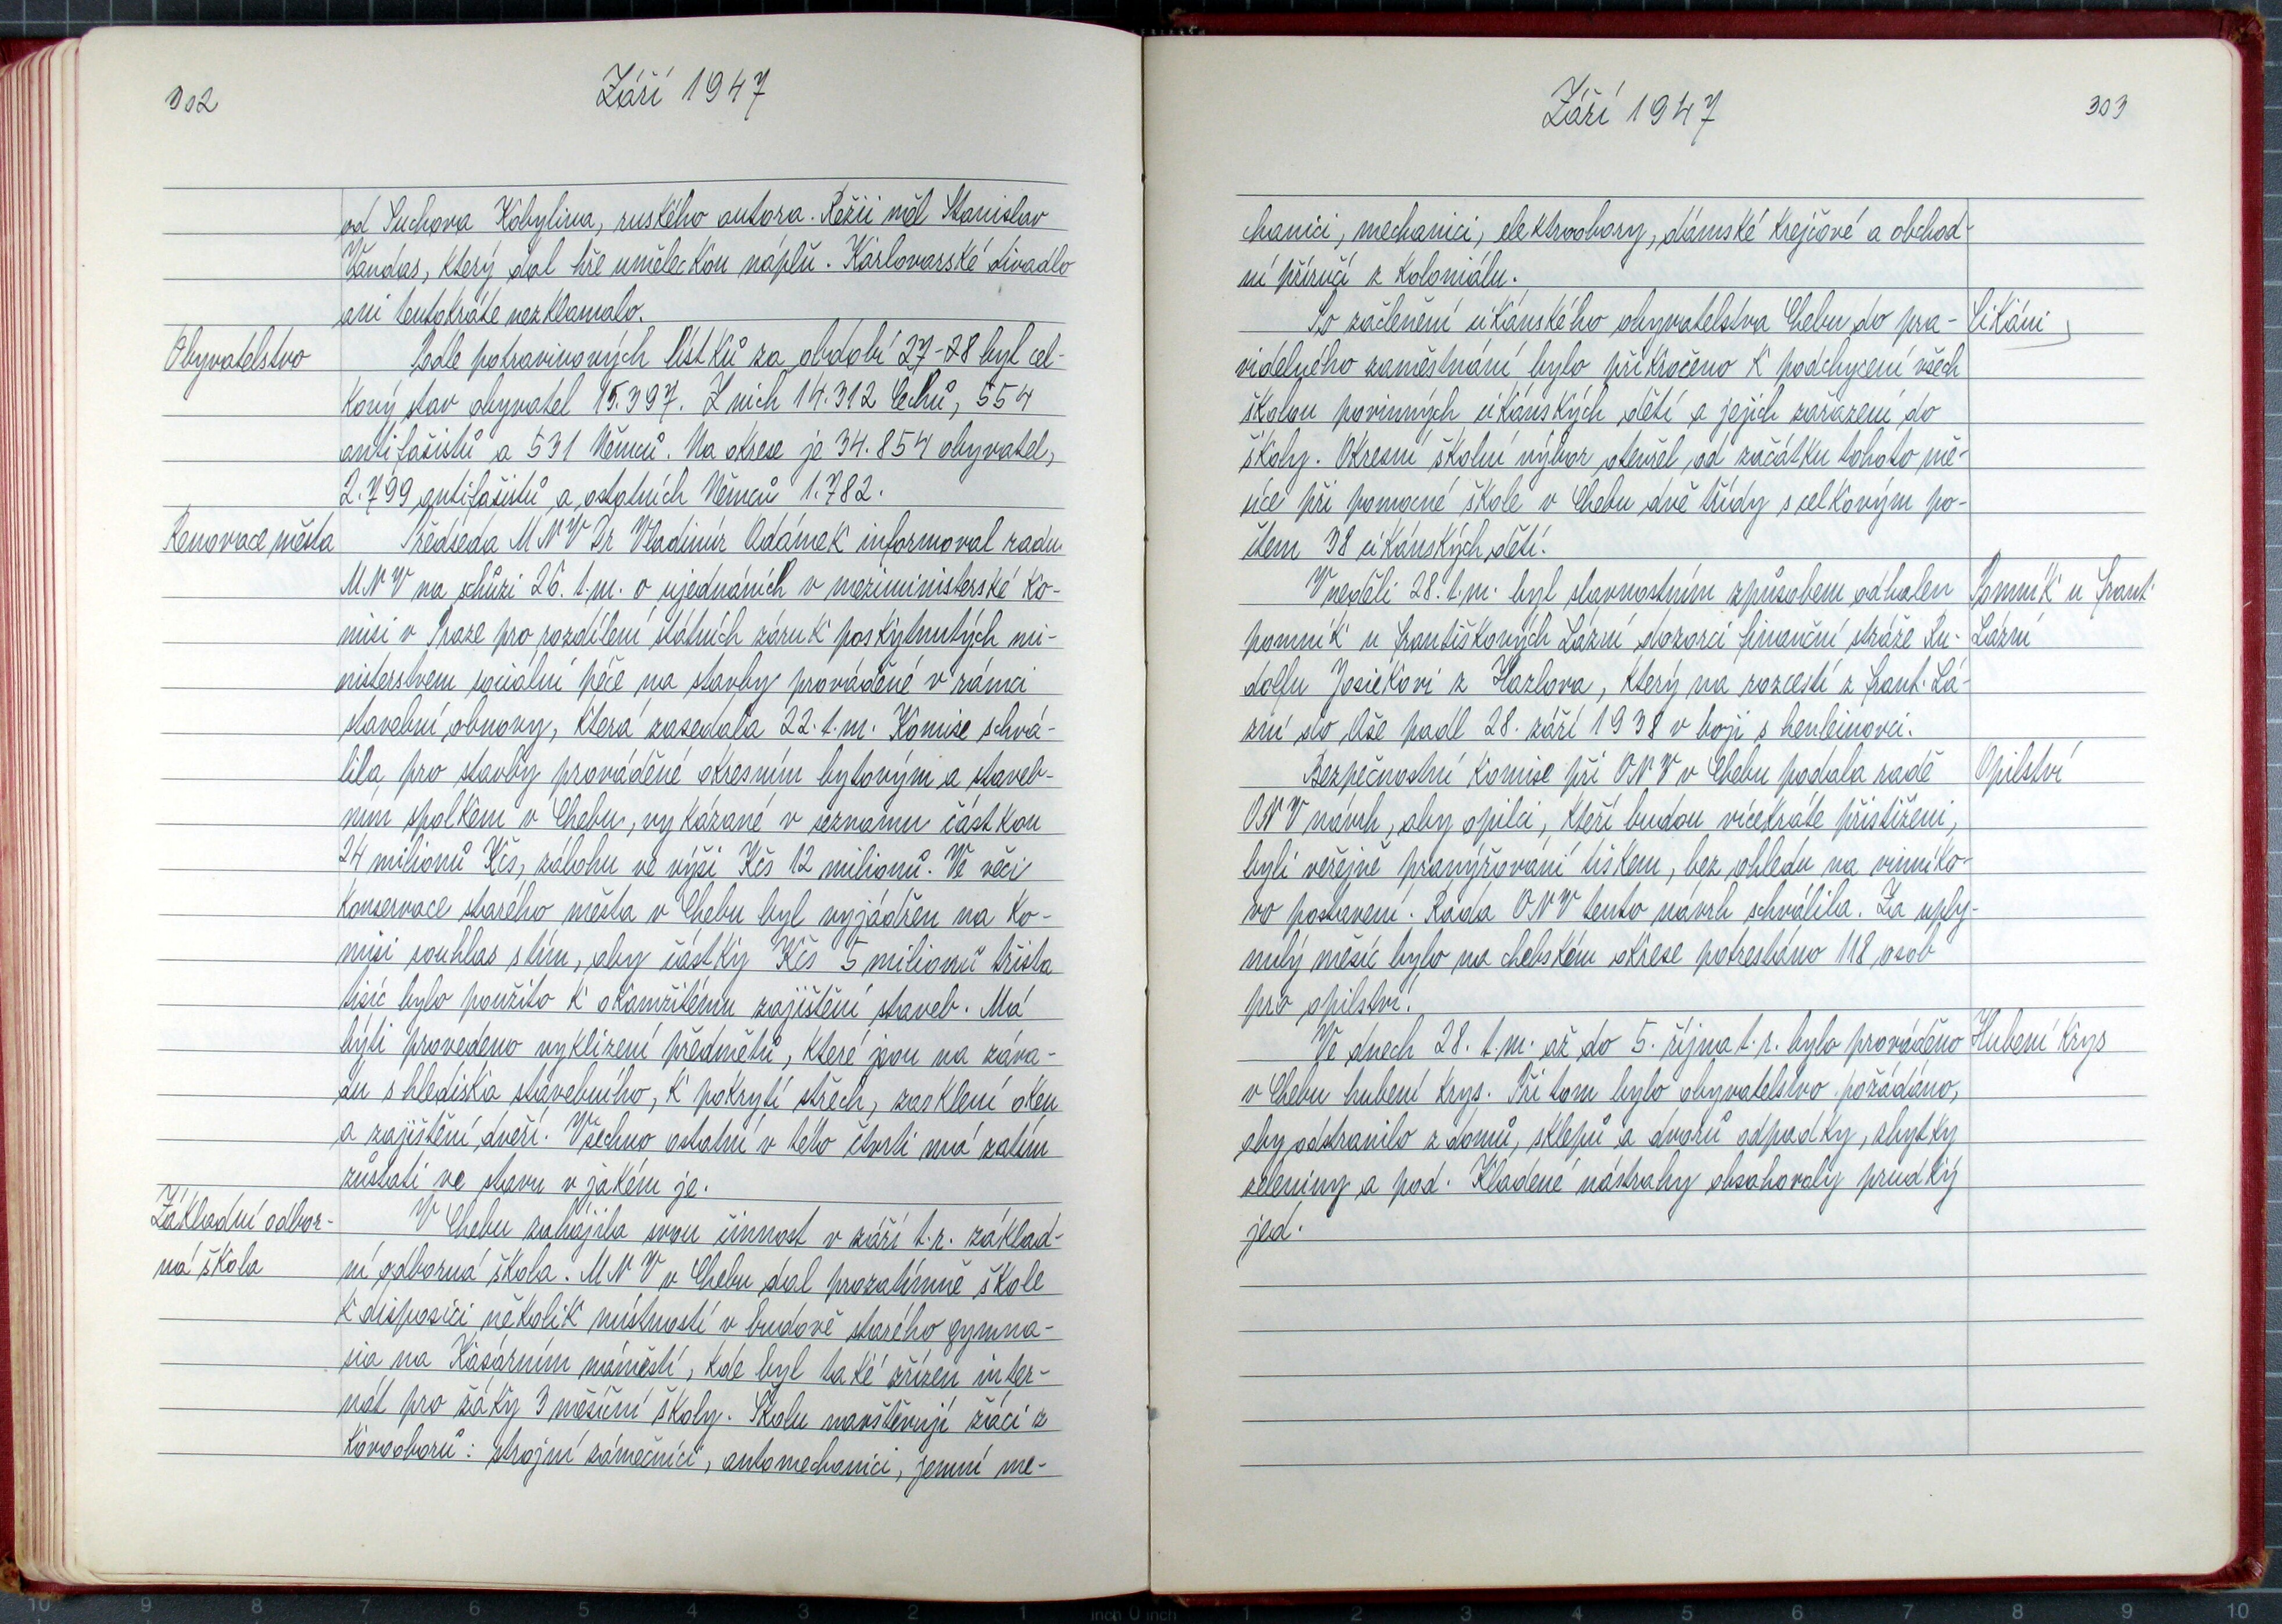 302
Září 1947
od Suchova Kobylina, ruského autora. Režii měl Stanislav
Vandas, který dal hře uměleckou náplň. Karlovarské divadlo
ani tentokráte nezklamalo.
Obyvatelstvo
Podle potravinových lístků za období 27-28 byl cel-
kový stav obyvatel 15.397. Z nich 14.312 Čechů, 554
antifašistů a 531 Němců. Na okrese je 34.854 obyvatel,
2.799 antifašistů a ostatních Němců 1.782.
Renovace města
Předseda MNV Dr Vladimír Adámek informoval radu
MNV na schůzi 26. t.m. o ujednáních v meziministerské ko-
misi v Praze pro rozdílení státních záruk poskytnutých mi-
nisterstvem sociální péče na stavby prováděné v rámci
stavební obnovy, která zasedala 22. t.m. Komise schvá-
lila pro stavby prováděné okresním bytovým a staveb-
ním spolkem v Chebu, vykázané v seznamu částkou
24 milionů Kčs, zálohu ve výši Kčs 12 milionů. Ve věci
konservace starého města v Chebu byl vyjádřen na ko-
misi souhlas s tím, aby částky Kčs 5 milionů třista
tisíc bylo použito k okamžitému zajištění staveb. Má
býti provedeno vyklizení předmětů, které jsou na záva-
du s hlediska stavebního, k pokrytí střech, zasklení oken
a zajištění dveří. Všechno ostatní v této čtvrti má zatím
zůstati ve stavu v jakém je.
Základní odbor-
ná škola
V Chebu zahájila svou činnost v září t.r. základ-
ní odborná škola. MNV v Chebu dal prozatímně škole
k disposici několik místností v budově starého gymna-
sia na Kasárním náměstí, kde byl také zřízen inter-
nát pro žáky 3 měsíční školy. Školu navštěvují žáci z
kovooborů: strojní zámečníci, automechanici, jemní me-
Září 1947
303
chanici, mechanici, elektroobory, dámské krejčové a obchod-
ní příručí z koloniálu.
Cikáni
Po začlenění cikánského obyvatelstva Chebu do pra-
videlného zaměstnání bylo přikročeno k podchycení všech
školou povinných cikánských dětí a jejich zařazení do
školy. Okresní školní výbor otevřel od začátku tohoto mě-
síce při pomocné škole v Chebu dvě třídy s celkovým po-
čtem 38 cikánských dětí.
Pomník u Frant.
Lázní
V neděli 28. t.m. byl slavnostním způsobem odhalen
pomník u Františkových Lázní dozorci finanční stráže Ru-
dolfu Josiekovi z Hazlova, který na rozcestí z Frant. Lá-
zní do Aše padl 28. září 1938 v boji s henleinovci.
Opilství
Bezpečnostní komise při ONV v Chebu podala radě
ONV návrh, aby opilci, kteří budou vícekráte přistiženi,
byli veřejně pranýřováni tiskem, bez ohledu na vinníko-
vo postavení. Rada ONV tento návrh schválila. Za uply-
nulý měsíc bylo na chebském okrese potrestáno 118 osob
pro opilství.
Hubení krys
Ve dnech 28. t.m. až do 5. října t.r. bylo prováděno
v Chebu hubení krys. Při tom bylo obyvatelstvo požádáno,
aby odstranilo z domů, sklepů a dvorů odpadky, zbytky
zeleniny a pod. Kladené nástrahy obsahovaly prudký
jed.